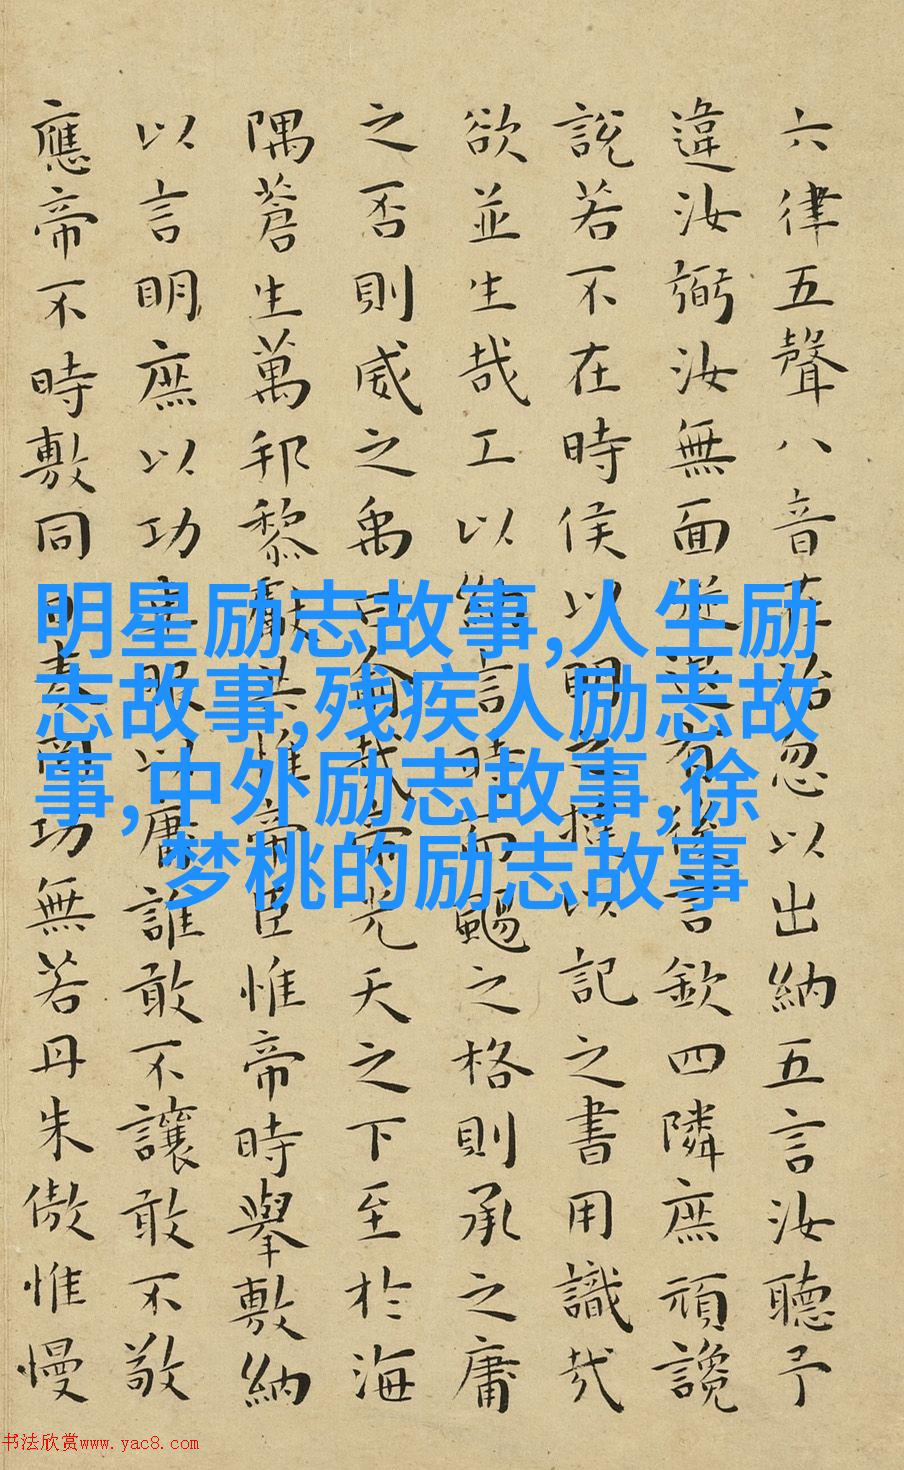 六律五聲八音在治忽以出納五言汝聽予
違汝弼汝無面從退有後言欽四隣庶頑讒
說若不在時侯以明之撻以記之書用識哉
欲並生哉工以納言時而颺之格則承之庸
之否則威之禹曰俞哉帝光天之下至於海
隅蒼生萬邦黎獻共惟帝臣惟帝時舉敷納
以言明庶以功車服以庸誰敢不讓敢不敬
應帝不時敷同日奏罔功無若丹朱傲惟慢
明星励志故事,人生励
志故事,残疾人励志故
事,中外励志故事,徐
梦桃的励志故事
书法欣赏www.yac8.com